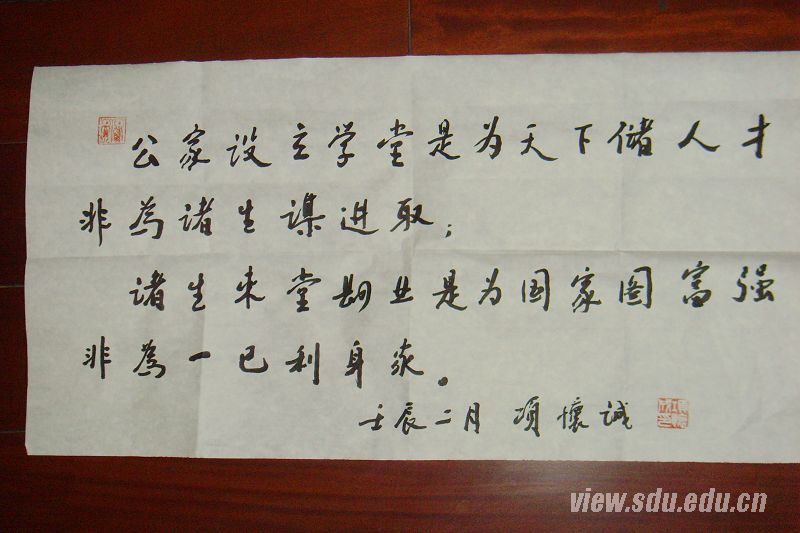 公家设立学堂是为天下储人才
非為诸生谋进取；
诸生来堂肄业是为国家图富强
非為一己利身家。
壬辰二月 项懷诚
view.sdu.edu.cn